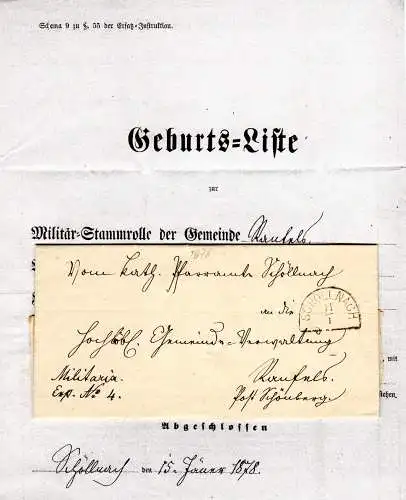 Schema 9 zu §. 55 der Ersatz-Instruktion.
Geburts-Liste
zur
Militär-Stammrolle der Gemeinde Ranfels.
Vom kath. Pfarramte Schöllnach
an die
SCHÖLLNACH
1
Gemeinde-Verwaltung
mit
Militaria.
Ranfels.
Exp. No 4.
Post Schönberg.
stehen,
Abgeschlossen
Schöllnach den 15. Jäner 1878.